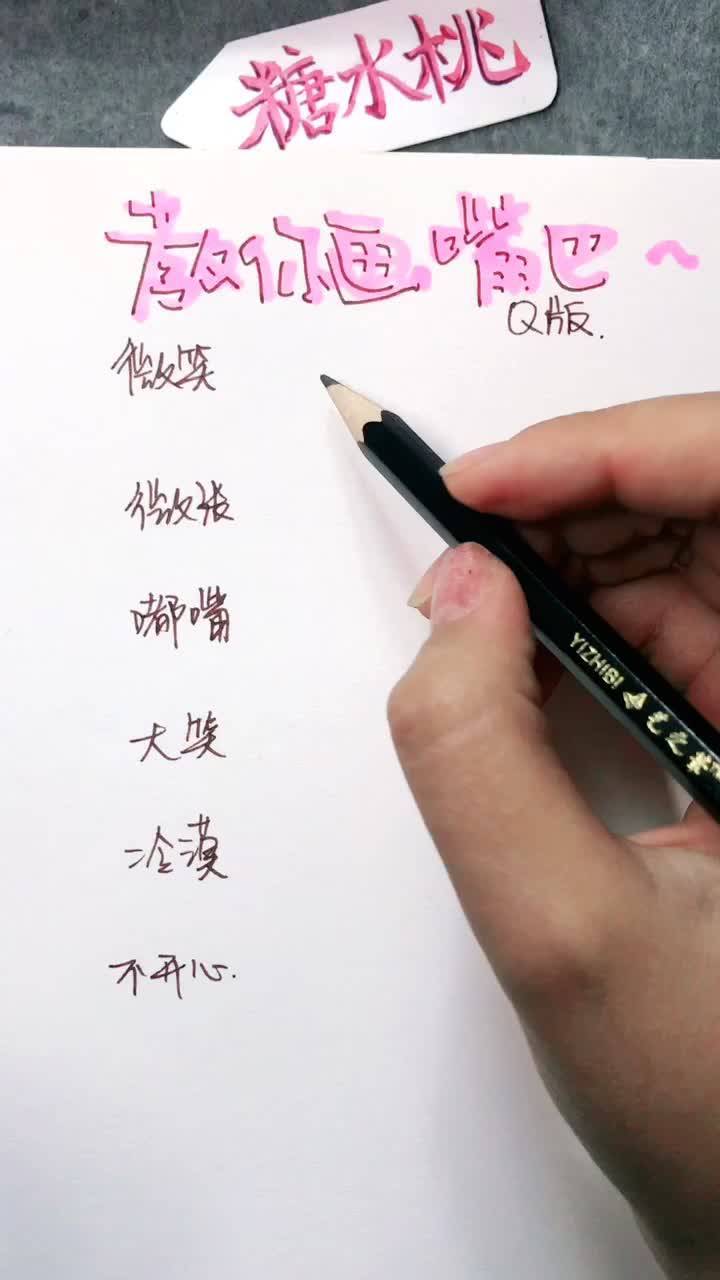 糖水桃
教你画嘴巴～
Q版.
微笑
微张
嘟嘴
大笑
冷漠
不开心.
YIZHIBI 艺之笔